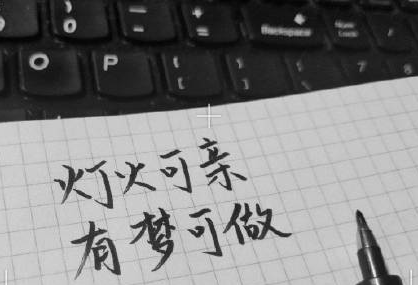 ) 0
- =
+ =
Backspace
Num Lock
/
O P { [ } ] 7 8
灯火可亲
有梦可做